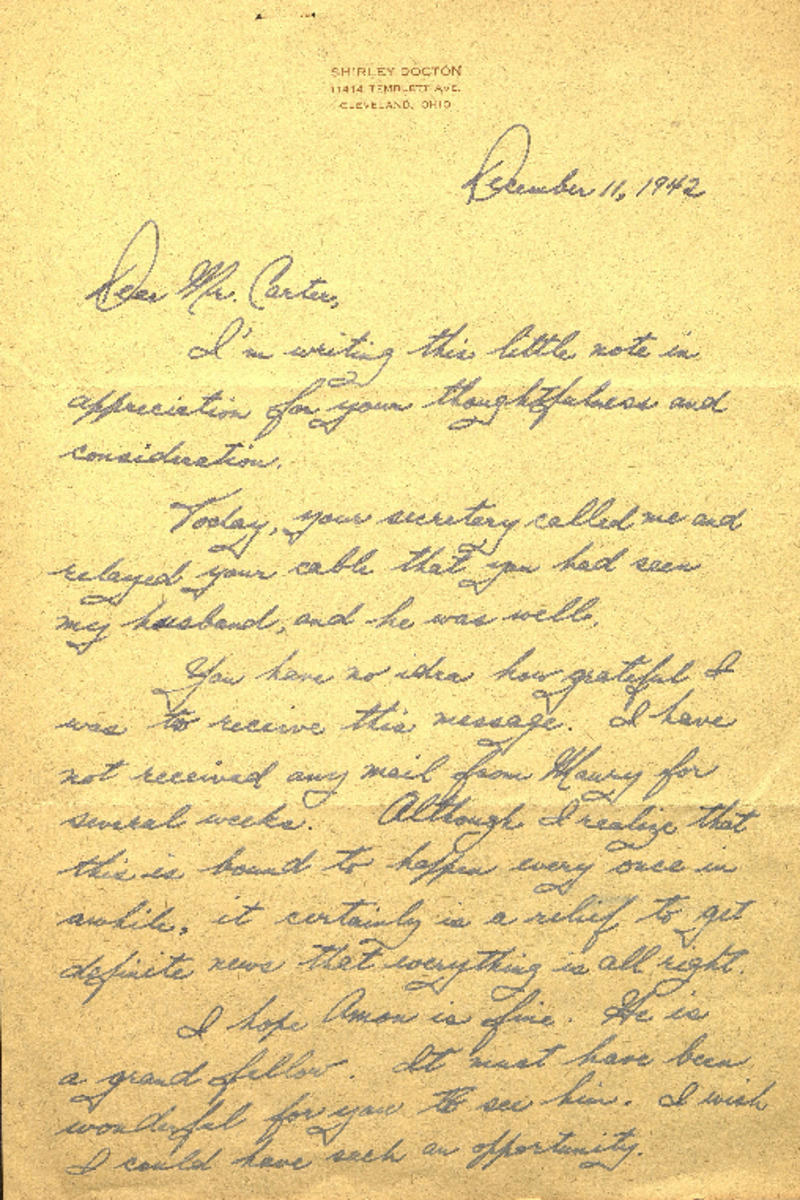 SHIRLEY DOCTON
11414 TEMBLETT AVE.
CLEVELAND, OHIO
December 11, 1942
Dear Mr. Carter,
I'm writing this little note in
appreciation for your thoughtfulness and
consideration.
Today, your secretary called me and
relayed your cable that you had seen
my husband, and he was well.
You have no idea how grateful I
was to receive this message. I have
not received any mail from Maury for
several weeks. Although I realize that
this is bound to happen every once in
awhile, it certainly is a relief to get
definite news that everything is all right.
I hope Amon is fine. He is
a grand fellow. It must have been
wonderful for you to see him. I wish
I could have such an opportunity.